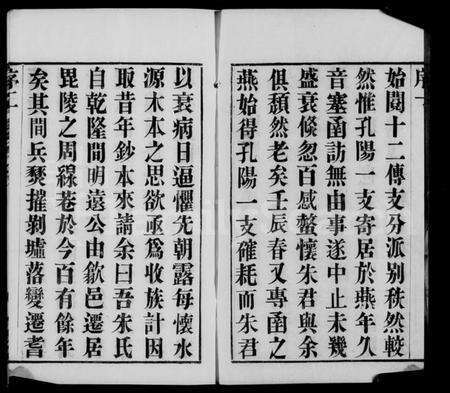 始閱十二傳支分派別秩然較
然惟孔陽一支寄居於燕年久
音塞函訪無由事遂中止未幾
盛衰倐忽百感螯懷朱君與余
俱頽然老矣壬辰春又專函之
燕始得孔陽一支確耗而朱君
以衰病日逼懼先朝露每懷水
源木本之思欲亟爲收族計因
取昔年鈔本來請余曰吾朱氏
自乾隆間明遠公由歙邑遷居
毘陵之周線巷於今百有餘年
矣其間兵燹摧剝墟落變遷耆